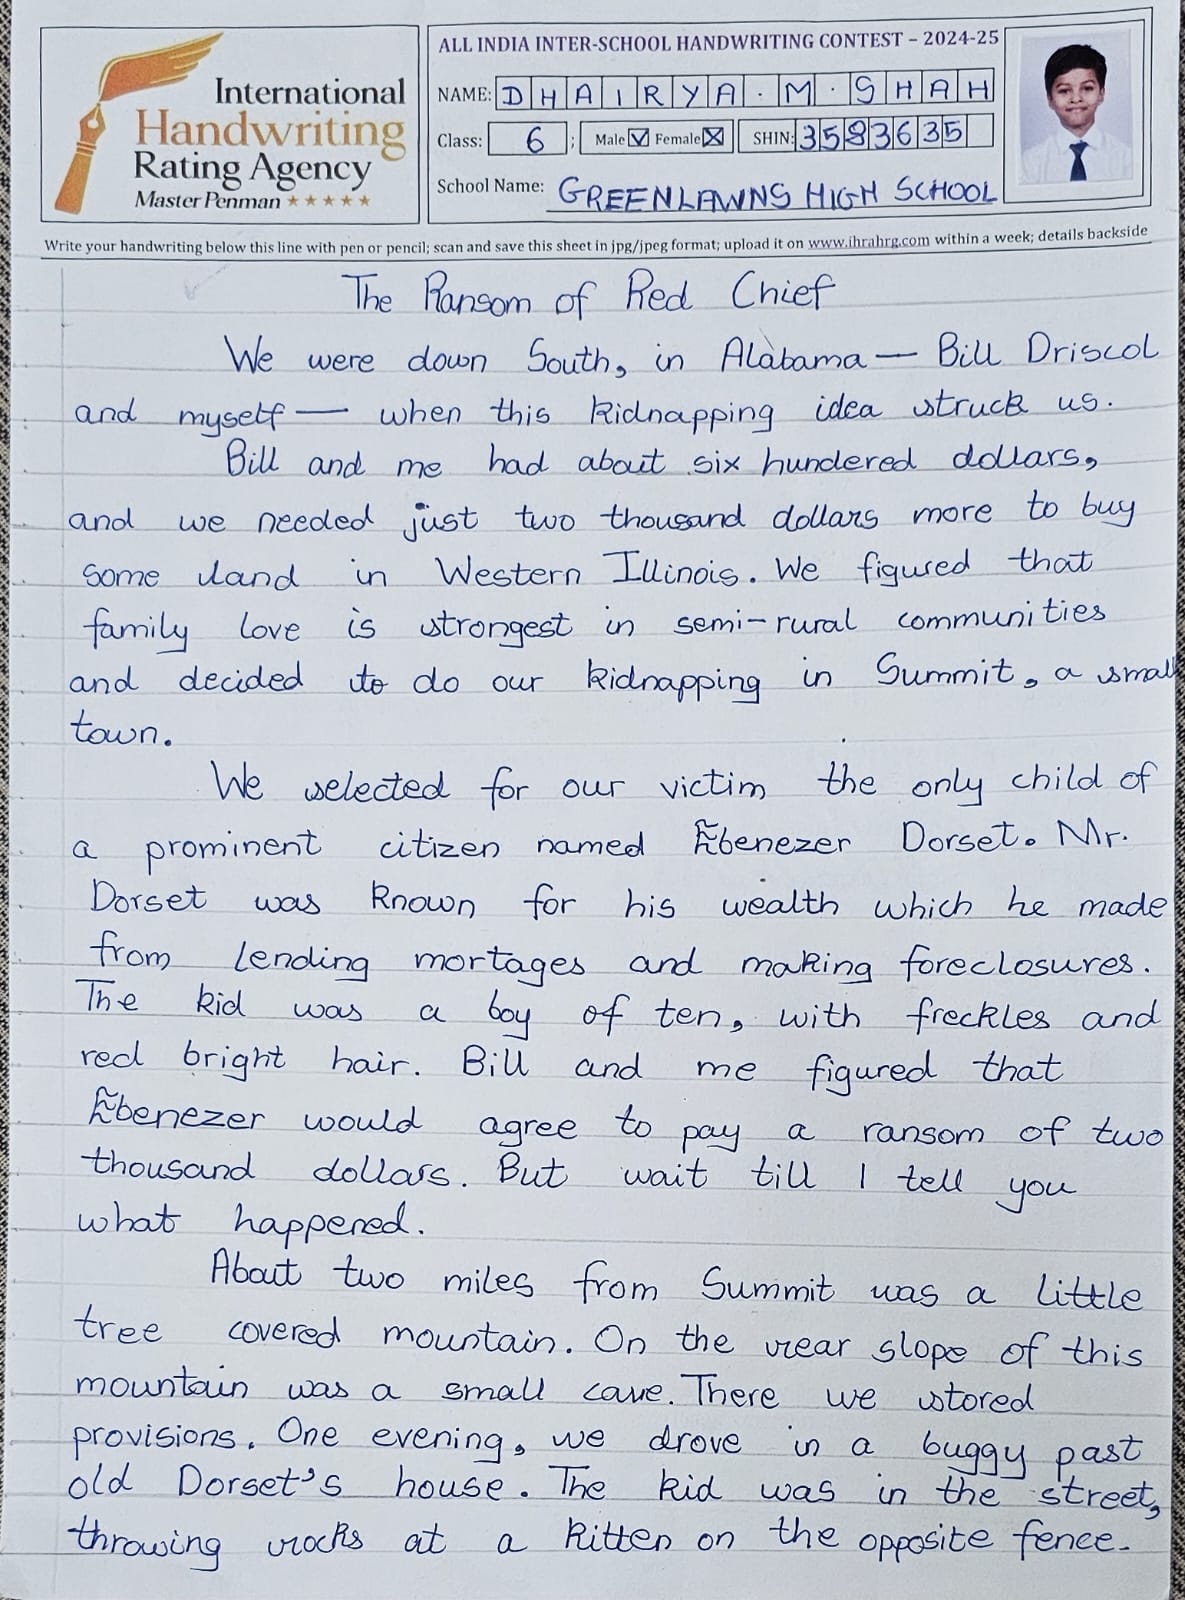 International
Handwriting
Rating Agency
Master Penman ★★★★★
ALL INDIA INTER-SCHOOL HANDWRITING CONTEST – 2024-25
NAME: DHAIRYA.M.SHAH
Class: 6 ; Male ☑ Female ☒ SHIN: 3583635
School Name: GREENLAWNS HIGH SCHOOL
Write your handwriting below this line with pen or pencil; scan and save this sheet in jpg/jpeg format; upload it on www.ihrahrg.com within a week; details backside
The Ransom of Red Chief
We were down South, in Alabama — Bill Driscol
and myself — when this kidnapping idea struck us.
Bill and me had about six hundered dollars,
and we needed just two thousand dollars more to buy
some land in Western Illinois. We figured that
family love is strongest in semi-rural communities
and decided to do our kidnapping in Summit, a small
town.
We selected for our victim the only child of
a prominent citizen named Ebenezer Dorset. Mr.
Dorset was known for his wealth which he made
from lending mortages and making foreclosures.
The kid was a boy of ten, with freckles and
red bright hair. Bill and me figured that
Ebenezer would agree to pay a ransom of two
thousand dollars. But wait till I tell you
what happened.
About two miles from Summit was a little
tree covered mountain. On the rear slope of this
mountain was a small cave. There we stored
provisions. One evening, we drove in a buggy past
old Dorset's house. The kid was in the street,
throwing rocks at a kitten on the opposite fence.